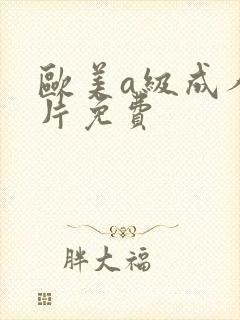 歐美a級成人
片免費
胖大福